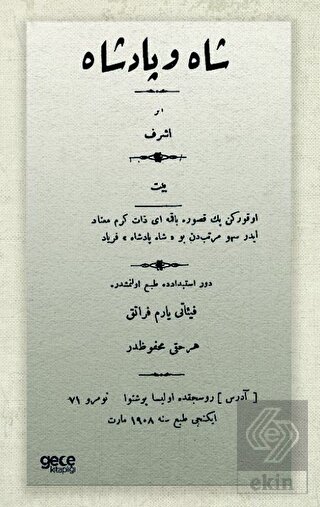 شاه و پادشاه
اثر
اشرف
بيت
اوقوركن پك قصوره باقمه ای ذات كرم معتاد
ايدر سهو مرتب‌دن بو « شاه پادشاه » فرياد
دور استبدادده طبع اولنمشدر.
فيئاتی يارم فرانقدر
هر حقی محفوظدر
[ آدرس ] روسجقده اوليسا پوشنوا نومرو ٧١
ايكنجی طبع سنه ١٩٠٨ مارت
gece
kitaplığı
ekin